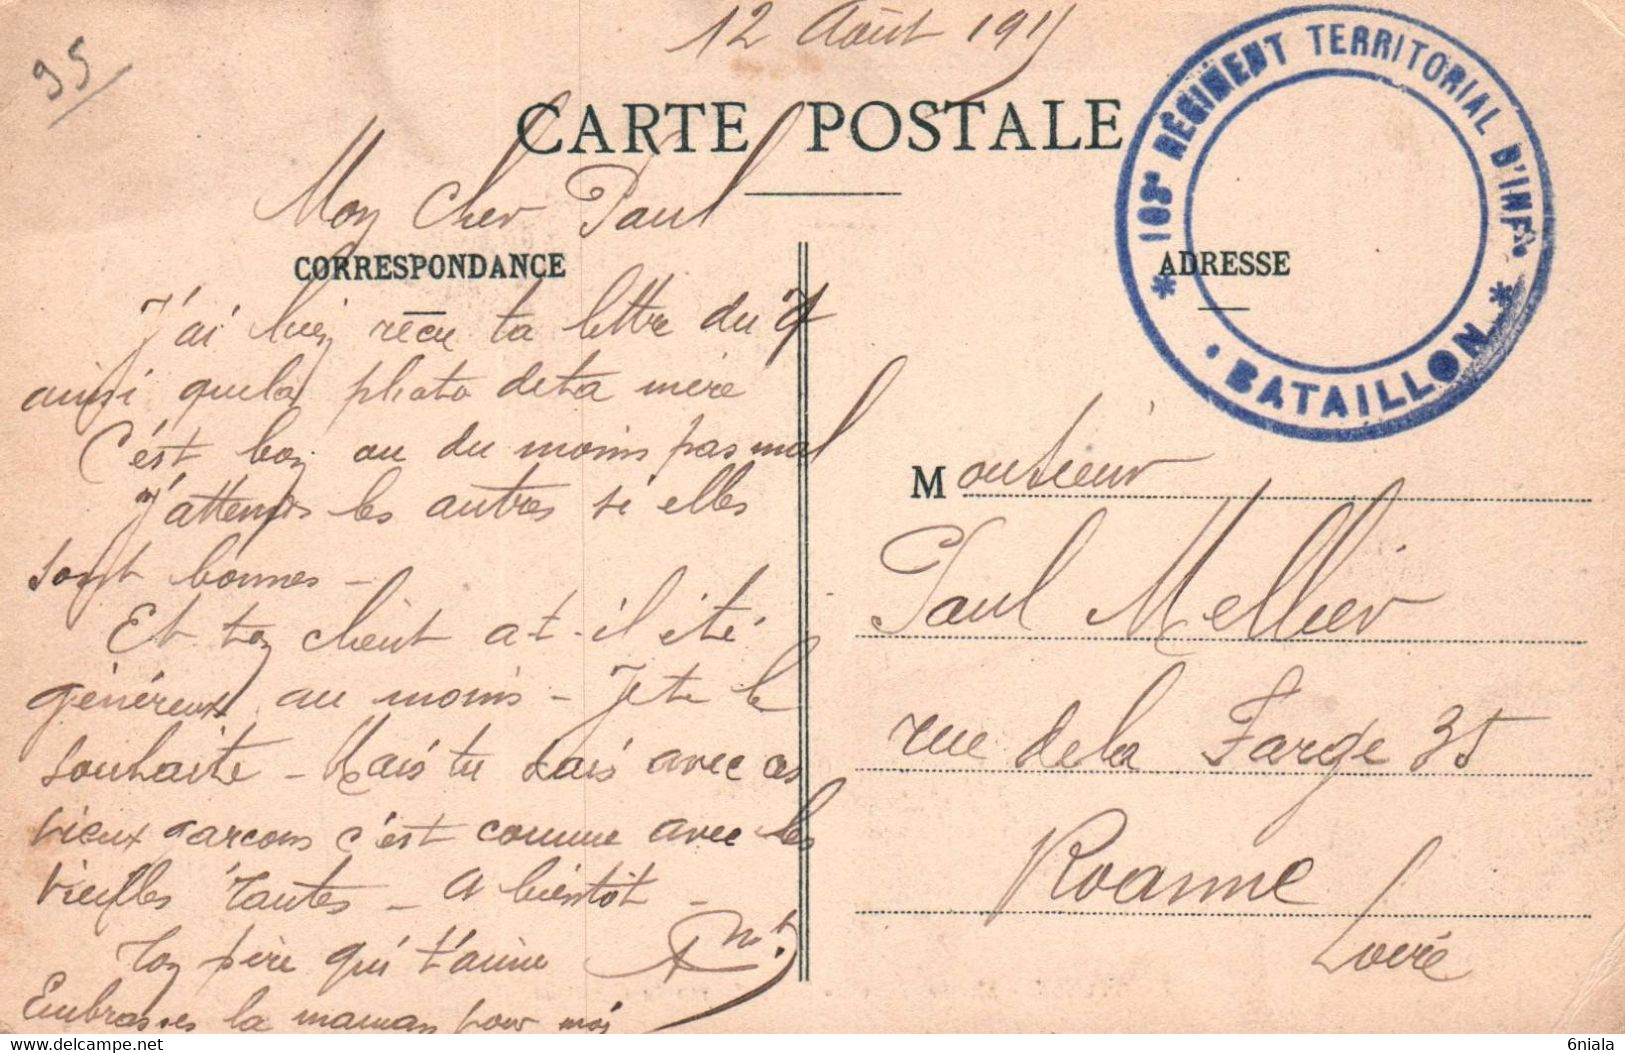 95
12 Août 191
CARTE POSTALE
108e RÉGIMENT TERRITORIAL D'INFie
* BATAILLON *
Mon Cher Paul
CORRESPONDANCE
ADRESSE
J'ai bien reçu ta lettre du 7
ainsi que la photo de ta mère
C'est bon ou du moins pas mal
J'attends les autres si elles
sont bonnes -
Et ton client a t-il été
généreux au moins - Je te le
souhaite - Mais tu sais avec ces
vieux garçons c'est comme avec les
vieilles Tantes - A bientôt -
Ton père qui t'aime
Embrasses la maman pour moi
Monsieur
Paul Mellier
rue de la Farge 35
Roanne
Loire
https://www.delcampe.net
6niala